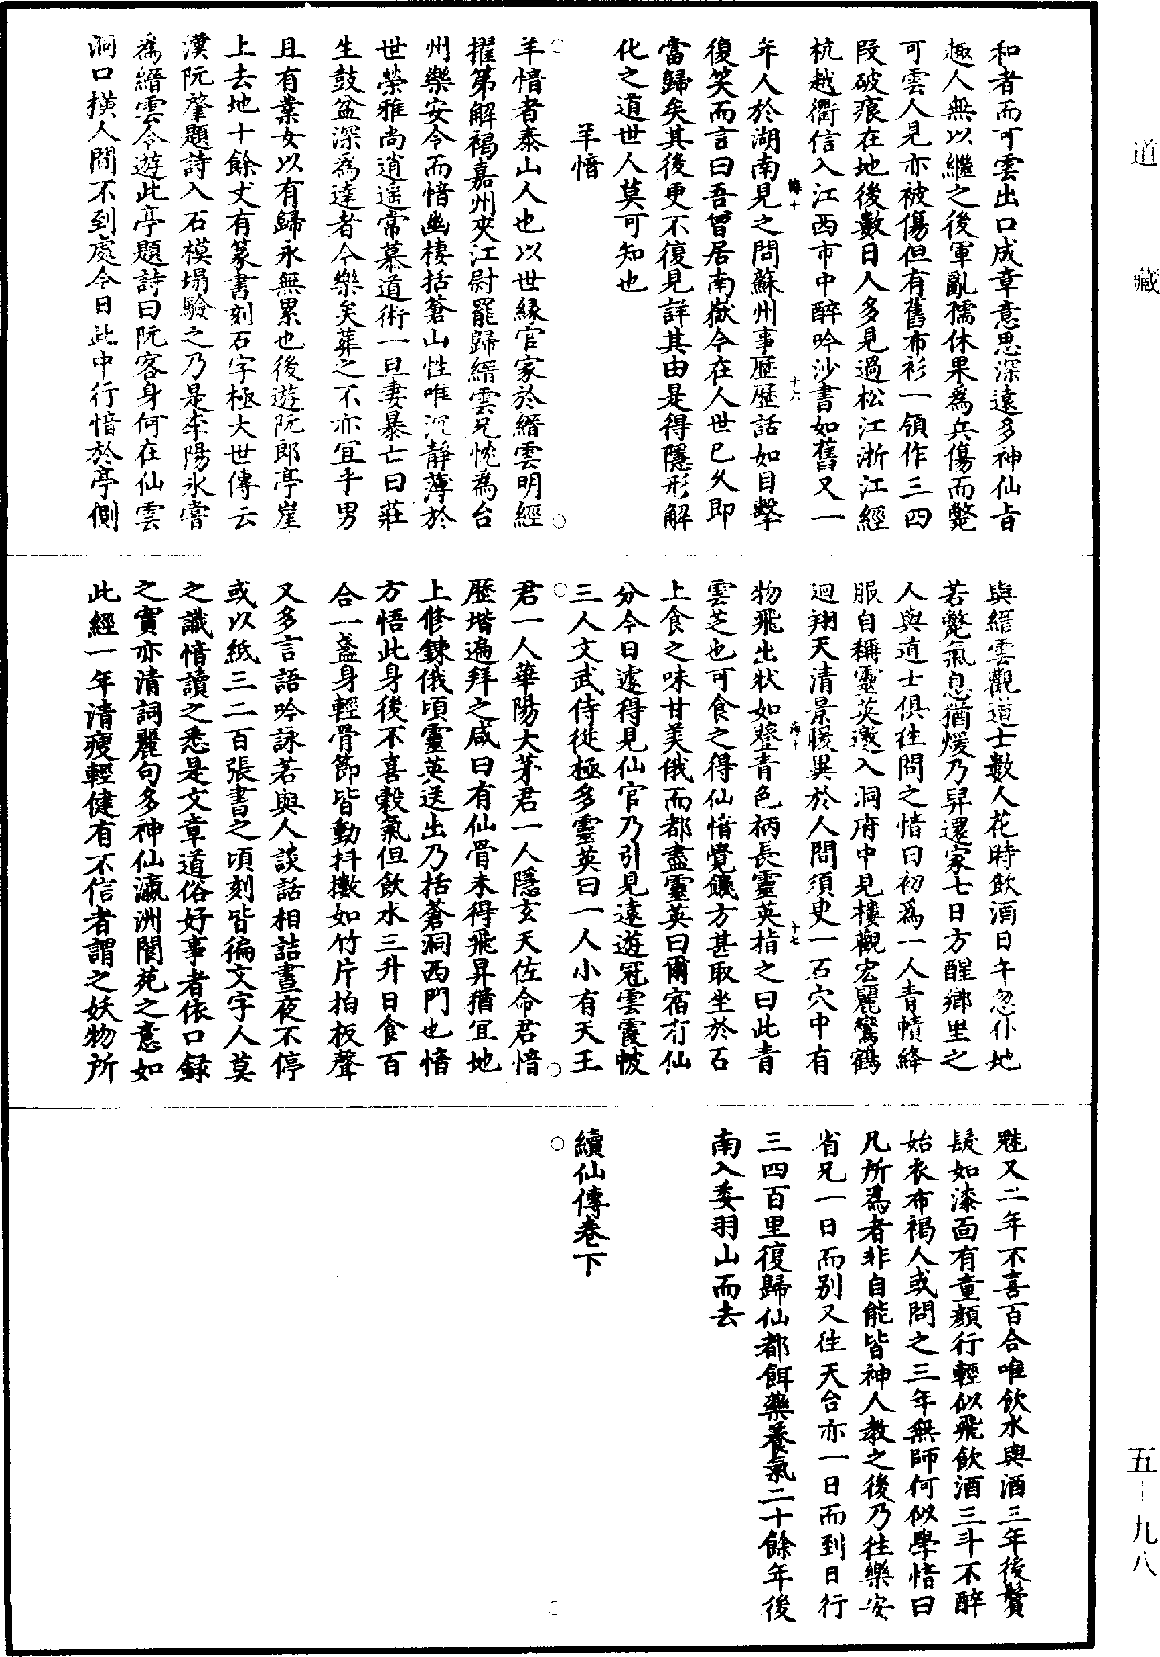 道藏
和者而可雲出口成章意思深遠多神仙旨
趣人無以繼之後軍亂孺休果為兵傷而斃
可雲人見亦被傷但有舊布衫一領作三四
段破痕在地後數日人多見過松江浙江經
杭越衢信入江西市中醉吟沙書如舊又一
年人於湖南見之問蘇州事歷歷話如目擊
復笑而言曰吾曾居南嶽今在人世已久即
當歸矣其後更不復見詳其由是得隱形解
化之道世人莫可知也
羊愔
羊愔者泰山人也以世緣官家於縉雲明經
擢第解褐嘉州夾江尉罷歸縉雲兄忱為台
州樂安令而愔幽棲括蒼山性唯沉靜薄於
世榮雅尚逍遙常慕道術一旦妻暴亡曰莊
生鼓盆深為達者今樂矣葬之不亦宜乎男
且有業女以有歸永無累也後遊阮郎亭崖
上去地十餘丈有篆書刻石字極大世傳云
漢阮肇題詩入石模搨驗之乃是李陽氷嘗
為縉雲令遊此亭題詩曰阮客身何在仙雲
洞口橫人間不到處今日此中行愔於亭側
與縉雲觀道士數人花時飲酒日午忽仆地
若斃氣息猶煖乃舁還家七日方醒鄉里之
人與道士俱往問之愔曰初為一人青幘絳
服自稱靈英邀入洞府中見樓觀宏麗鸞鶴
迴翔天清景暖異於人間須臾一石穴中有
物飛出狀如蔡青色柄長靈英指之曰此青
雲芝也可食之得仙愔覺饑方甚取坐於石
上食之味甘美俄而都盡靈英曰爾宿有仙
分今日遽得見仙官乃引見遠遊冠雲霞帔
三人文武侍從極多靈英曰一人小有天王
君一人華陽大茅君一人隱玄天佐命君愔
歷堦遍拜之咸曰有仙骨未得飛昇猶宜地
上修鍊俄頃靈英送出乃括蒼洞西門也愔
方悟此身後不喜穀氣但飲水三升日食百
合一盞身輕骨節皆動抖擻如竹片拍板聲
又多言語吟詠若與人談話相詰晝夜不停
或以紙三二百張書之頃刻皆徧文字人莫
之識愔讀之悉是文章道俗好事者依口録
之實亦清詞麗句多神仙瀛洲閬苑之意如
此經一年清瘦輕健有不信者謂之妖物所
魅又二年不喜百合唯飲水與酒三年後鬢
髮如漆面有童顏行輕似飛飲酒三斗不醉
始衣布褐人或問之三年無師何似學愔曰
凡所為者非自能皆神人教之後乃往樂安
省兄一日而別又往天台亦一日而到日行
三四百里復歸仙都餌藥養氣二十餘年後
南入委羽山而去
續仙傳卷下
五—九八